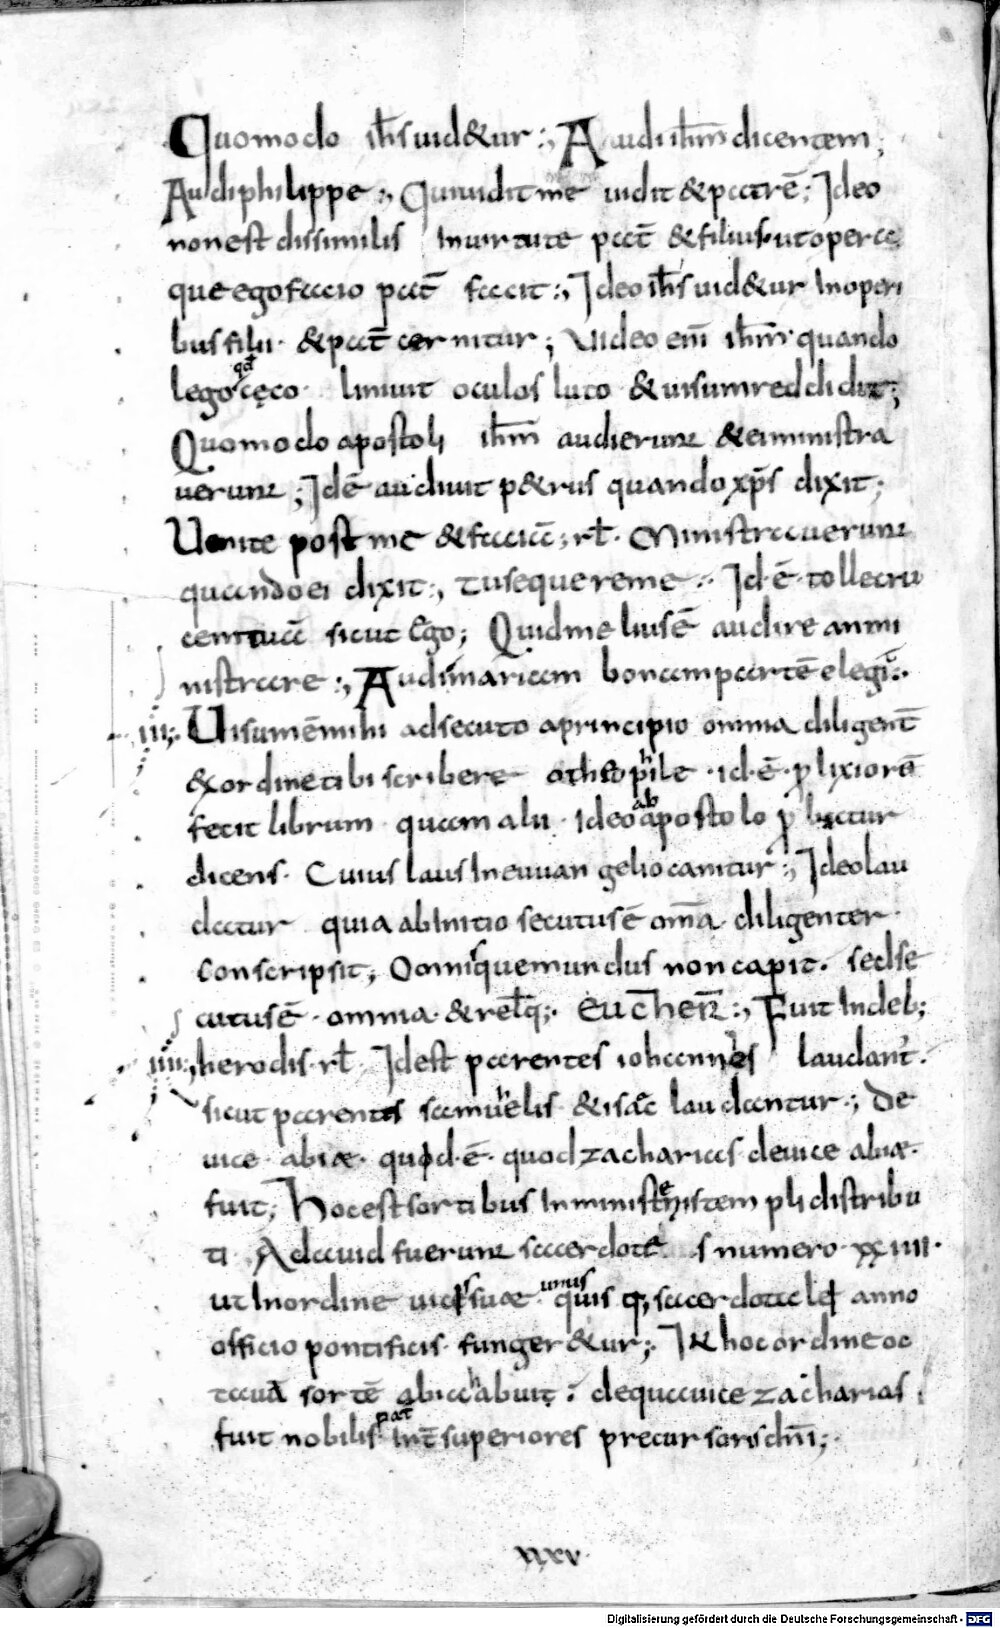 Quomodo ih̅s uid&ur :, Audi ih̅m dicentem;
Audi philippe :, Qui uidit me uidit & patrē; Ideo
non est dissimilis In uirtute pat̅ & filius· ut opera
que ego facio pat̅ facit :, Ideo ih̅s uid&ur In operi
bus filii· & pat̅ cernitur; Uideo eni̅ ih̅m· quando
lego qd̅ cęco· liniuit oculos luto & uisum reddidit;
Quomodo apostoli ih̅m audierunt & ei ministra
uerunt; Idē audiuit p&rus quando xp̅s dixit;
Uenite post me & faciā; rl̅· Ministrauerunt
quando ei dixit :, tu sequere me :· Id·ē· tolle cru
cem tuā sicut Ego; Quid melius ē audire an mi
nistrare :, Audi mariam bonam partē elegit :·
iii;· Uisum ē mihi adsecuto a principio omnia diligent̅
& ordine tibi scribere otheophile · id·ē· ꝓlixiorē
fecit librum quam alii· Ideo ab apostolo
dicens· Cuius laus In euuangelio canitur :, Ideo lau
datur quia ab Initio secutus ē om̅a diligenter·
conscripsit, Omnis quem mundus non capit· sed se
cutus ē· omnia· & rel̅q;· eucher̅ :, Fuit In dieb;
iiii;, herodis· rl̅ Id est parentes iohannes laudant̅·
sicut parentes samuhelis & isaac laudantur·; De
uice· abiæ· quod·ē· quod zacharias de uice abiæ·
fuit, Hoc est sortibus In ministeriis templi distribu
ti· A dauid fuerunt sacerdote s numero· xxiiii·
ut In ordine uicis suæ· unus quis q; sacerdotale anno
officio pontificis· funger&ur;· In hoc ordine oc
tauā sortē abia habuit : de qua uice zacharias
fuit nobilis pat̅ Int̅ superiores precursoris dn̅i;·
xxv
Digitalisierung gefördert durch die Deutsche Forschungsgemeinschaft - DFG